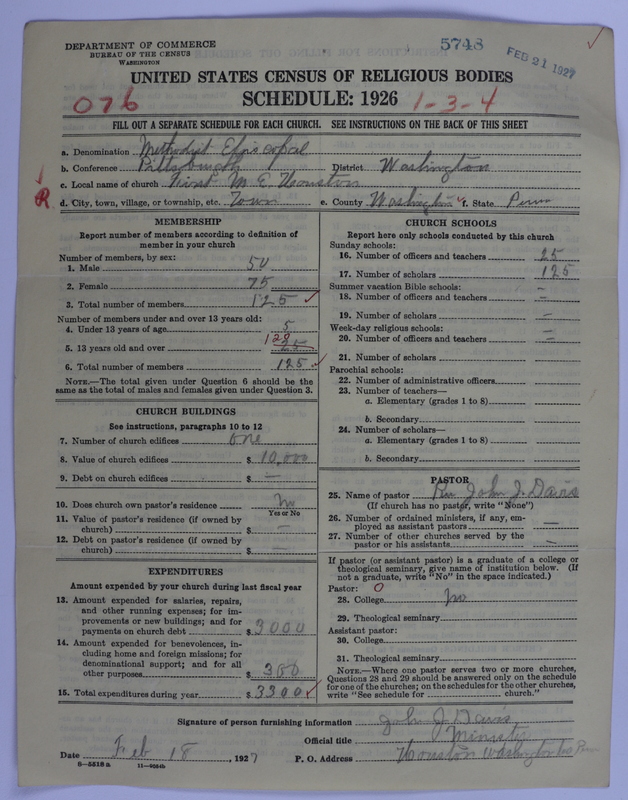 DEPARTMENT OF COMMERCE
BUREAU OF THE CENSUS
WASHINGTON
5748
FEB 21 1927
UNITED STATES CENSUS OF RELIGIOUS BODIES
076
SCHEDULE: 1926
1-3-4
FILL OUT A SEPARATE SCHEDULE FOR EACH CHURCH. SEE INSTRUCTIONS ON THE BACK OF THIS SHEET
a. Denomination Methodist Episcopal
b. Conference Pittsburgh District Washington
c. Local name of church First M. E. Houston
R
d. City, town, village, or township, etc. Town e. County Washington f. State Penn
MEMBERSHIP
Report number of members according to definition of
member in your church
Number of members, by sex:
1. Male 50
2. Female 75
3. Total number of members 125
Number of members under and over 13 years old:
4. Under 13 years of age 5
5. 13 years old and over 120
6. Total number of members 125
NOTE.—The total given under Question 6 should be the
same as the total of males and females given under Question 3.
CHURCH BUILDINGS
See instructions, paragraphs 10 to 12
7. Number of church edifices one
8. Value of church edifices $ 10,000
9. Debt on church edifices $ —
10. Does church own pastor's residence No
Yes or No
11. Value of pastor's residence (if owned by
church) $ —
12. Debt on pastor's residence (if owned by
church) $ —
EXPENDITURES
Amount expended by your church during last fiscal year
13. Amount expended for salaries, repairs,
and other running expenses; for im-
provements or new buildings; and for
payments on church debt $ 3000
14. Amount expended for benevolences, in-
cluding home and foreign missions; for
denominational support; and for all
other purposes $ 300
15. Total expenditures during year $ 3300
CHURCH SCHOOLS
Report here only schools conducted by this church
Sunday schools:
16. Number of officers and teachers 25
17. Number of scholars 125
Summer vacation Bible schools:
18. Number of officers and teachers —
19. Number of scholars —
Week-day religious schools:
20. Number of officers and teachers —
21. Number of scholars
Parochial schools:
22. Number of administrative officers
23. Number of teachers—
a. Elementary (grades 1 to 8)
b. Secondary
24. Number of scholars—
a. Elementary (grades 1 to 8)
b. Secondary
PASTOR
25. Name of pastor Rev John J. Davis
(If church has no pastor, write "None")
26. Number of ordained ministers, if any, em-
ployed as assistant pastors —
27. Number of other churches served by the
pastor or his assistants —
If pastor (or assistant pastor) is a graduate of a college or
theological seminary, give name of institution below. (If
not a graduate, write "No" in the space indicated.)
Pastor: 0
28. College No
29. Theological seminary
Assistant pastor:
30. College
31. Theological seminary
NOTE.—Where one pastor serves two or more churches,
Questions 28 and 29 should be answered only on the schedule
for one of the churches; on the schedules for the other churches,
write "See schedule for church."
Signature of person furnishing information John J. Davis
Official title Minister
Date Feb 18, 1927 P. O. Address Houston Washington Co Penn
8—5518a 11—9084b